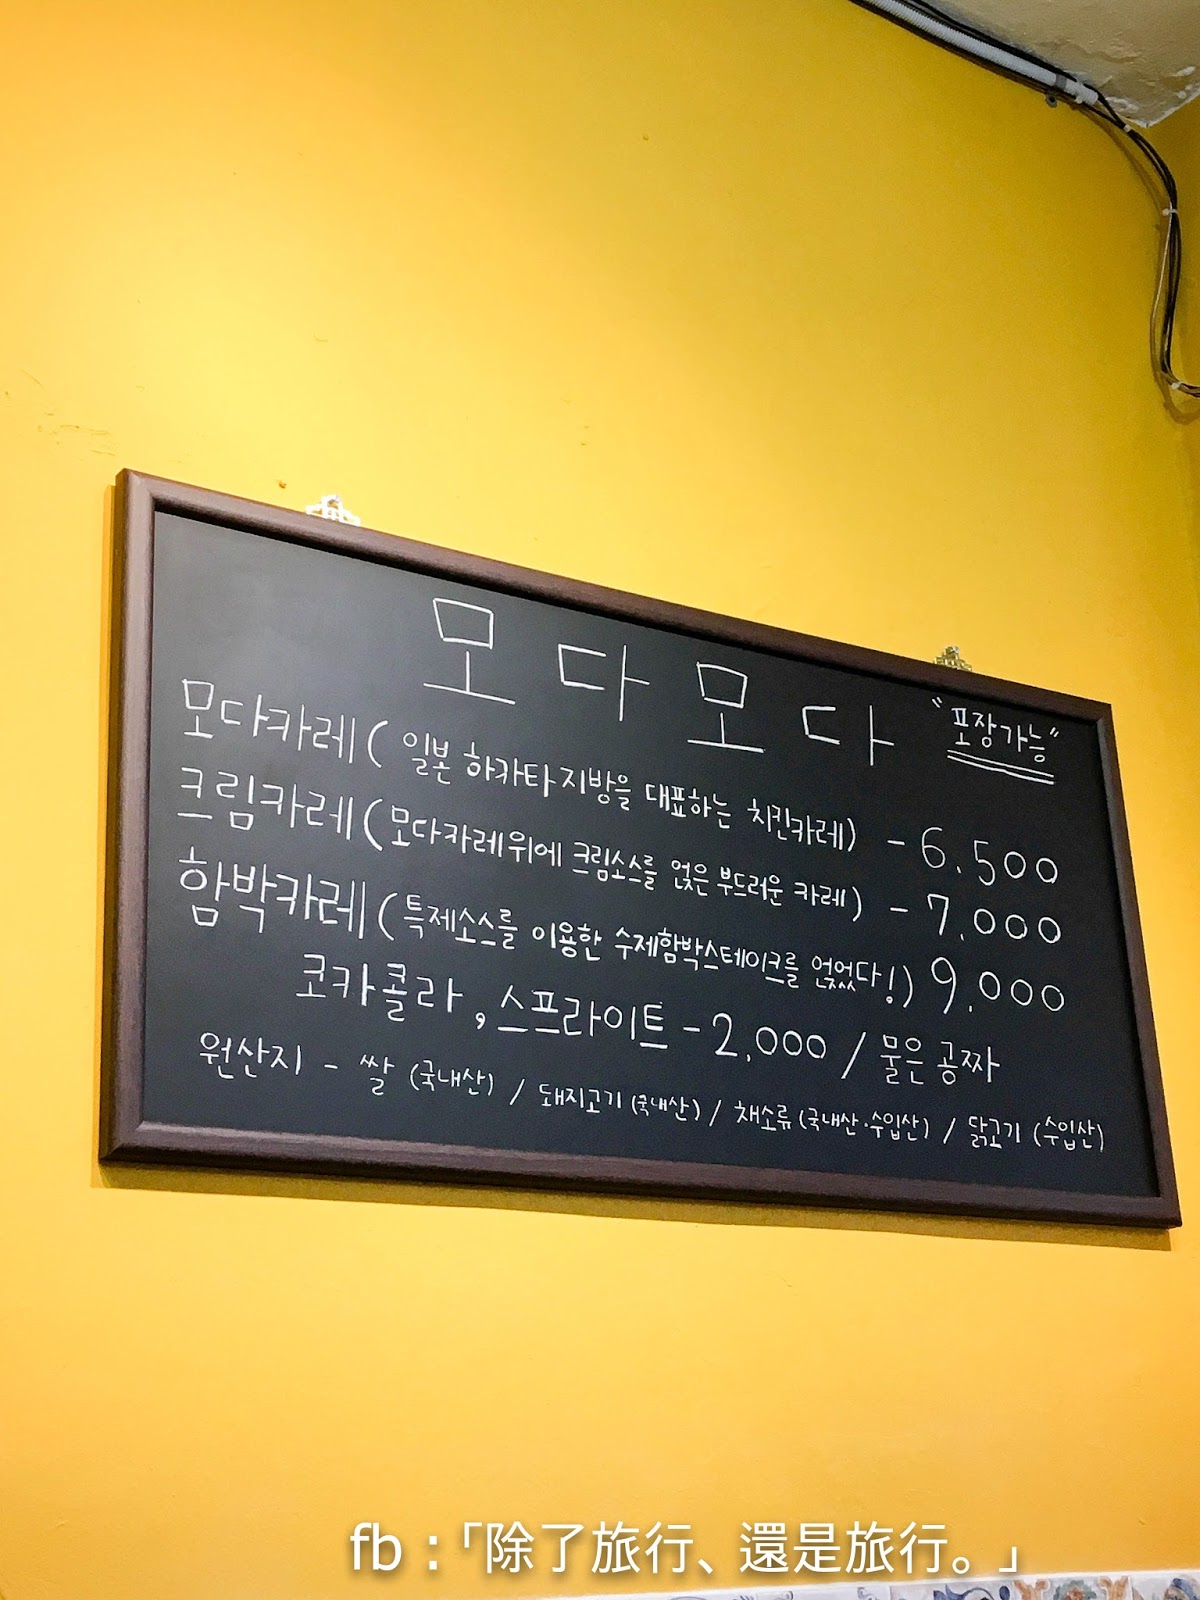 모다모다
"포장가능"
모다카레 (일본 하카타지방을 대표하는 치킨카레) - 6.500
크림카레 (모다카레위에 크림소스를 얹은 부드러운 카레) - 7.000
함박카레 (특제소스를 이용한 수제함박스테이크를 얹었다!) 9.000
코카콜라, 스프라이트 - 2.000 / 물은 공짜
원산지 - 쌀 (국내산) / 돼지고기 (국내산) / 채소류 (국내산·수입산) / 닭고기 (수입산)
fb：「除了旅行、還是旅行。」